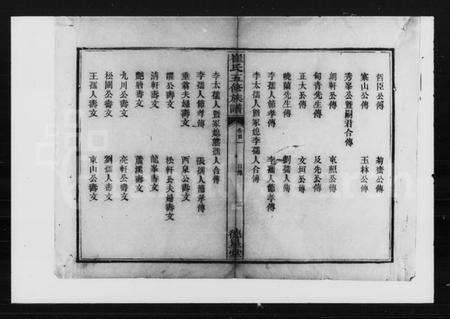 公傳 菊齋公傳
案山公傳 玉林公傳
秀峯公暨嗣君合傳
朗軒公傳 東照公傳
甸青先生傳 及先公傳
正大公傳 文垣公傳
曉蘭先生傳 劉孺人傳
李孺人節孝傳 李孺人節孝傳
李太孺人暨冢媳李孺人合傳
崔氏五修族譜 卷首 目錄
李太孺人暨冢媳孺人合傳
李孺人節孝傳 張孺人節孝傳
夫婦壽文 西泉公壽文
公壽文 松軒公夫婦壽文
清軒公壽文 龍峯壽文
壽文 蘆溪壽文
九川公壽文 亮軒公壽文
松園公壽文 劉孺人壽文
王孺人壽文 東山公壽文